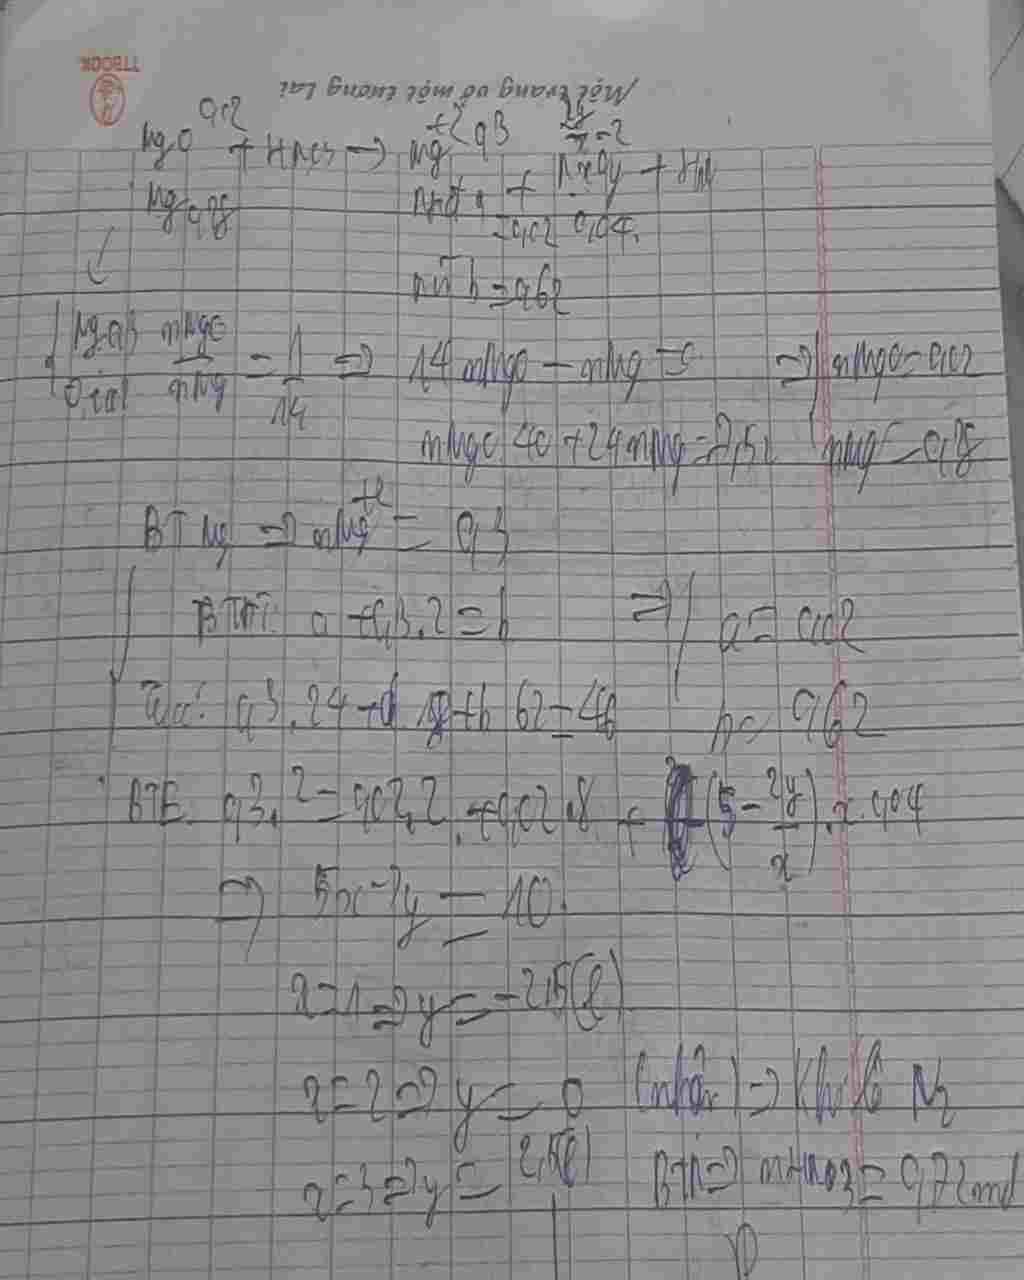 TTBOOK
Một trang vở một tương lai
0,02 +2 0,3 2y/x = 2
MgO + HNO3 → Mg NxOy + H2O
Mg 0,28 NH4+ a = 0,02 0,04
NO3- b = 0,62
Mg 0,3 nMgO/nMg = 1/14 => 14nMgO - nMg = 0 => nMgO = 0,02
nMgO 40 + 24nMg = 7,52 nMg = 0,28
BT Mg => nMg+2 = 0,3
BTĐT: a + 0,3.2 = b => a = 0,02
0,3.24 + a 18 + b 62 = 46 b = 0,62
BTE: 0,3.2 = 0,02.2 + 0,02.8 + (5 - 2y/x).x.0,04
=> 5x - 2y = 10
x = 1 => y = -2,5(l)
x = 2 => y = 0 (nhận) => Khí là N2
x = 3 => y = 2,5(l) BTN => nHNO3 = 0,72 mol
D